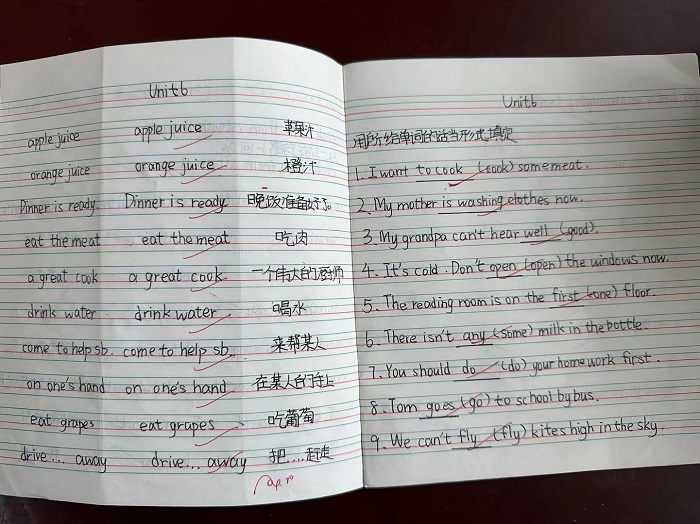 Unit6
apple juice apple juice 苹果汁
orange juice orange juice 橙汁
Dinner is ready. Dinner is ready 晚饭准备好了。
eat the meat eat the meat 吃肉
a great cook a great cook 一个伟大的厨师
drink water drink water 喝水
come to help sb. come to help sb. 来帮某人
on one's hand on one's hand 在某人的手上
eat grapes eat grapes 吃葡萄
drive... away drive... away 把....赶走
Unit6
用所给单词的适当形式填空
1. I want to cook (cook) some meat.
2. My mother is washing clothes now.
3. My grandpa can't hear well (good).
4. It's cold. Don't open (open) the windows now.
5. The reading room is on the first (one) floor.
6. There isn't any (some) milk in the bottle.
7. You should do (do) your homework first.
8. Tom goes (go) to school by bus.
9. We can't fly (fly) kites high in the sky.